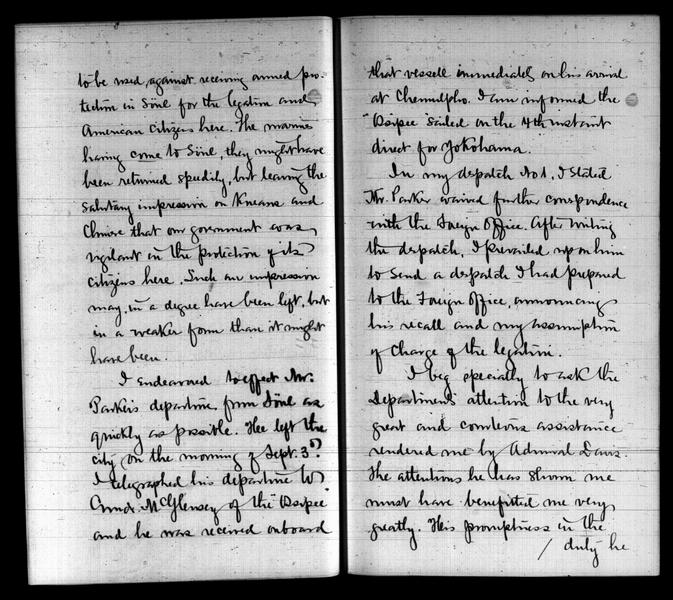 to be used, against receiving armed pro-
tection in Söul for the legation and
American citizens here. The marines
having come to Söul, they might have
been returned speedily, but leaving the
salutary impression on Koreans and
Chinese that our government was
vigilant in the protection of its
citizens here. Such an impression
may, in a degree have been left, but
in a weaker form than it might
have been.
I endeavored to effect Mr.
Parker's departure from Söul as
quickly as possible. Hee left the
city on the morning of Sept. 3d.
I telegraphed his departure to
Comdr. McGlensey of the "Ossipee"
and he was received onboard
that vessell immediately on his arrival
at Chemulpho. I am informed the
"Ossipee" sailed on the 4th instant
direct for Yokohama.
In my dispatch No 1, I stated
Mr. Parker waived further correspondence
with the Foreign Office. After writing
the dispatch, I prevailed upon him
to send a dispatch I had prepared
to the Foreign Office, announcing
his recall and my assumption
of charge of the legation.
I beg specially to ask the
Department's attention to the very
great and courteous assistance
rendered me by Admiral Davis.
The attentions he has shown me
must have benefitted me very
greatly. His promptness in the
/ duty he